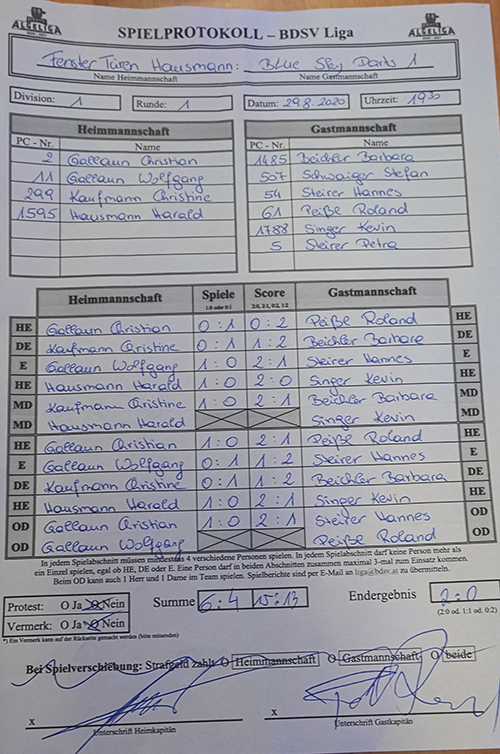 ALGELIGA SPIELPROTOKOLL – BDSV Liga ALGELIGA
Fenster Türen Hausmann : Blue Sky Darts 1
Name Heimmannschaft Name Gastmannschaft
Division: 1 Runde: 1 Datum: 29.8.2020 Uhrzeit: 19 30
Heimmannschaft Gastmannschaft
PC - Nr. Name PC - Nr. Name
2 Gallaun Christian 1485 Beichler Barbara
11 Gallaun Wolfgang 507 Schwaiger Stefan
299 Kaufmann Christine 54 Steirer Hannes
1595 Hausmann Harald 61 Peiße Roland
1788 Singer Kevin
5 Steirer Petra
Heimmannschaft Spiele Score Gastmannschaft
1:0 oder 0:1 2:0, 2:1, 0:2, 1:2
HE Gallaun Christian 0 : 1 0 : 2 Peiße Roland HE
DE Kaufmann Christine 0 : 1 1 : 2 Beichler Barbara DE
E Gallaun Wolfgang 1 : 0 2 : 1 Steirer Hannes E
HE Hausmann Harald 1 : 0 2 : 0 Singer Kevin HE
MD Kaufmann Christine 1 : 0 2 : 1 Beichler Barbara MD
MD Hausmann Harald Singer Kevin MD
HE Gallaun Christian 1 : 0 2 : 1 Peiße Roland HE
E Gallaun Wolfgang 0 : 1 1 : 2 Steirer Hannes E
DE Kaufmann Christine 0 : 1 1 : 2 Beichler Barbara DE
HE Hausmann Harald 1 : 0 2 : 1 Singer Kevin HE
OD Gallaun Christian 1 : 0 2 : 1 Steirer Hannes OD
OD Gallaun Wolfgang Peiße Roland OD
In jedem Spielabschnitt müssen mindestens 4 verschiedene Personen spielen. In jedem Spielabschnitt darf keine Person mehr als
ein Einzel spielen, egal ob HE, DE oder E. Eine Person darf in beiden Abschnitten zusammen maximal 3-mal zum Einsatz kommen.
Beim OD kann auch 1 Herr und 1 Dame im Team spielen. Spielberichte sind per E-Mail an liga@bdsv.at zu übermitteln.
Protest: O Ja O Nein Summe 6 : 4 15 : 13 Endergebnis 2 : 0
Vermerk: O Ja O Nein (2:0 od. 1:1 od. 0:2)
*) Ein Vermerk kann auf der Rückseite gemacht werden (bitte mitsenden)
Bei Spielverschiebung: Strafgeld zahlt O Heimmannschaft O Gastmannschaft O beide
x x
Unterschrift Heimkapitän Unterschrift Gastkapitän